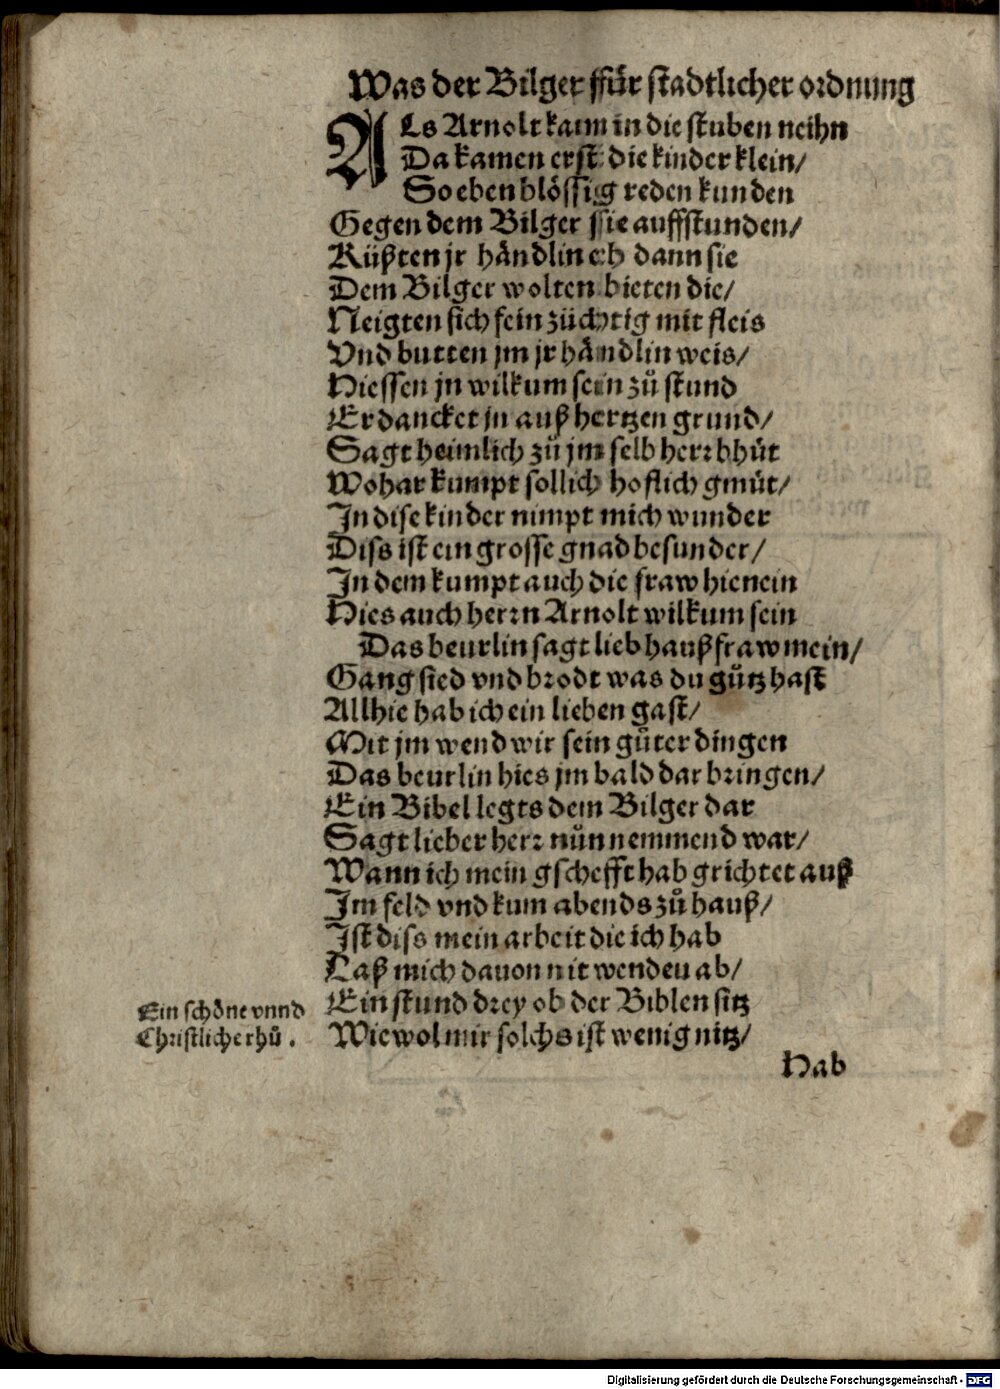 Was der Bilger für stadtlicher ordnung
ALs Arnolt kam in die stuben neihn
Da kamen erst die kinder klein/
So eben blössig reden kunden
Gegen dem Bilger sie auffstunden/
Küßten jr händlin eh dann sie
Dem Bilger wolten bieten die/
Neigten sich fein züchtig mit fleis
Vnd butten jm jr händlin weis/
Hiessen jn wilkum sein zů stund
Er dancket jn auß hertzen grund/
Sagt heimlich zů jm selb herr bhůt
Wohar kumpt sollich hoflich gmůt/
In dise kinder nimpt mich wunder
Diss ist ein grosse gnad besunder/
In dem kumpt auch die fraw hienein
Hies auch herrn Arnolt wilkum sein
Das beurlin sagt lieb haußfraw mein/
Gang sied vnd brodt was du gůtz hast
Allhie hab ich ein lieben gast/
Mit jm wend wir sein gůter dingen
Das beurlin hies jm bald dar bringen/
Ein Bibel legts dem Bilger dar
Sagt lieber herr nůn nemmend war/
Wann ich mein gschefft hab grichtet auß
Im feld vnd kum abends zů hauß/
Ist diss mein arbeit die ich hab
Laß mich dauon nit wenden ab/
Ein schöne vnnd
Christliche rhů.
Ein stund drey ob der Biblen sitz
Wiewol mir solchs ist wenig nitz/
Hab
Digitalisierung gefördert durch die Deutsche Forschungsgemeinschaft - DFG